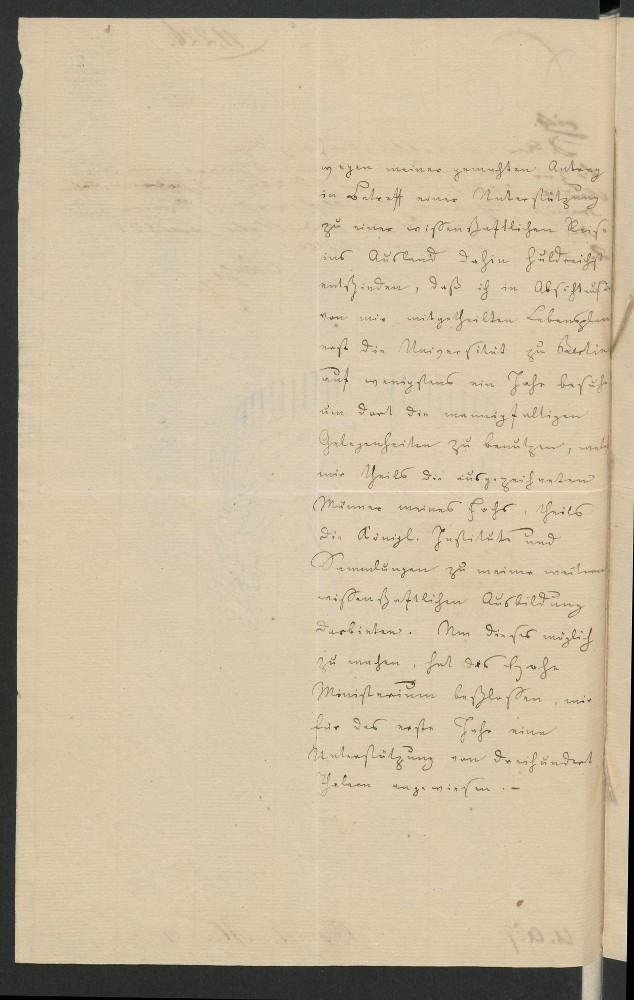 wegen meines gemachten Antrag
in Betreff einer Unterstützung
zu einer wissenschaftlichen Reise
ins Ausland dahin huldreichst
entschieden, daß ich in Absicht
von mir mitgetheilten Lebensplan
erst die Universität zu Berlin
auf wenigstens ein Jahr besuche
um dort die mannigfaltigen
Gelegenheiten zu benutzen, welche
mir theils die ausgezeichneten
Männer meines Fachs, theils
die Königl. Institute und
Sammlungen zu meiner weitern
wissenschaftlichen Ausbildung
darbieten. Um dieses möglich
zu machen, hat das Hohe
Ministerium beschlossen, mir
für das erste Jahr eine
Unterstützung von dreihundert
Thalern angewiesen. –